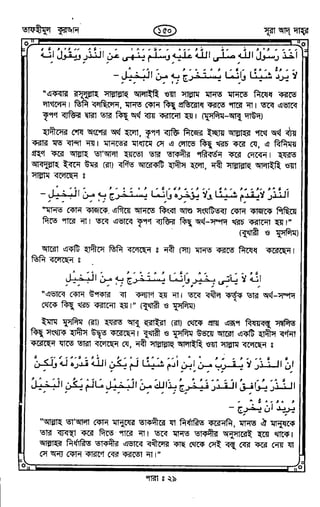 তাফহীমুল কুরআন
১৫০
সূরা আদ্ দাহর
اَخَذَ رَسُوْلُ اللهِ صَلَّى اللهُ عَلَيْهِ وَسَلَّمَ يَنْهٰى عَنِ النَّذْرِ وَيَقُوْلُ اِنَّهٗ
لَا يَرُدُّ شَيْئًا وَاِنَّمَا يُسْتَخْرَجُ بِهٖ مِنَ الْبَخِيْلِ -
"একবার রসূলুল্লাহ সাল্লাল্লাহু আলাইহি ওয়া সাল্লাম মানত মানতে নিষেধ করতে
লাগলেন। তিনি বলছিলেন, মানত কোন কিছু প্রতিরোধ করতে পারে না। তবে এভাবে
কৃপণ ব্যক্তির দ্বারা তার কিছু অর্থ ব্যয় করানো হয়। (মুসলিম-আবু দাউদ)
হাদীসের শেষ অংশের অর্থ হলো, কৃপণ ব্যক্তি নিজের ইচ্ছায় আল্লাহর পথে অর্থ ব্যয়
করার মত বান্দা নয়। মানতের মাধ্যমে সে এ লোভে কিছু খরচ করে যে, এ বিনিময়
গ্রহণ করে আল্লাহ তা'আলা হয়তো তার তাকদীর পরিবর্তন করে দেবেন। হযরত
আবদুল্লাহ ইবনে উমর (রা) বর্ণিত আরেকটি হাদীস হলো, নবী সাল্লাল্লাহু আলাইহি ওয়া
সাল্লাম বলেছেন ঃ
اَلنَّذْرُ لَا يُقَدِّمُ شَيْئًا وَلَا يُؤَخِّرُهٗ وَاِنَّمَا يُسْتَخْرَجُ بِهٖ مِنَ الْبَخِيْلِ -
"মানত কোন কাজকে এগিয়ে আনতে কিংবা আশু সংঘটিতব্য কোন কাজকে পিছিয়ে
দিতে পারে না। তবে এভাবে কৃপণ ব্যক্তির কিছু অর্থ-সম্পদ খরচ করানো হয়।"
(বুখারী ও মুসলিম)
আরো একটি হাদীসে তিনি বলেছেন ঃ নবী (সা) মানত করতে নিষেধ করেছেন।
তিনি বলেছেন ঃ
اِنَّهٗ لَا يَاْتِىْ بِخَيْرٍ وَاِنَّمَا يُسْتَخْرَجُ بِهٖ مِنَ الْبَخِيْلِ -
"এভাবে কোন উপকার বা কল্যাণ হয় না। তবে বখীল কর্তৃক তার অর্থ-সম্পদ
থেকে কিছু খরচ করানো হয়।" (বুখারী ও মুসলিম)
ইমাম মুসলিম (রা) হযরত আবু হুরাইরা (রা) থেকে প্রায় এরূপ বিষয়বস্তু সম্বলিত
কিছু সংখ্যক হাদীস উদ্ধৃত করেছেন। বুখারী ও মুসলিম উভয়ে আরো একটি হাদীস বর্ণনা
করেছেন যাতে তারা বলেছেন যে, নবী সাল্লাল্লাহু আলাইহি ওয়া সাল্লাম বলেছেন ঃ
اِنَّ النَّذْرَ لَا يُقَرِّبُ مِنْ اِبْنِ اٰدَمَ شَيْئًا لَمْ يَكُنِ اللهُ قَدَّرَهٗ لَهٗ وَلٰكِنِ
النَّذْرُ يُوَافِقُ الْقَدَرَ فَيُخْرَجُ بِذٰلِكَ مِنَ الْبَخِيْلِ مَالَمْ يَكُنِ الْبَخِيْلُ
يُرِيْدُ اَنْ يُّخْرِجَ -
"আল্লাহ তা'আলা কোন মানুষের তাকদীরে যা নির্ধারিত করেননি, মানত ঐ মানুষকে
তার ব্যবস্থা করে দিতে পারে না। তবে মানত তাকদীর অনুসারেই হয়ে থাকে।
আল্লাহর নির্ধারিত তাকদীর এভাবে বখীলের কাছ থেকে সেই বস্তু বের করে নেয় যা
সে অন্য কোন কারণে বের করতো না।"
পারা ঃ ২৯